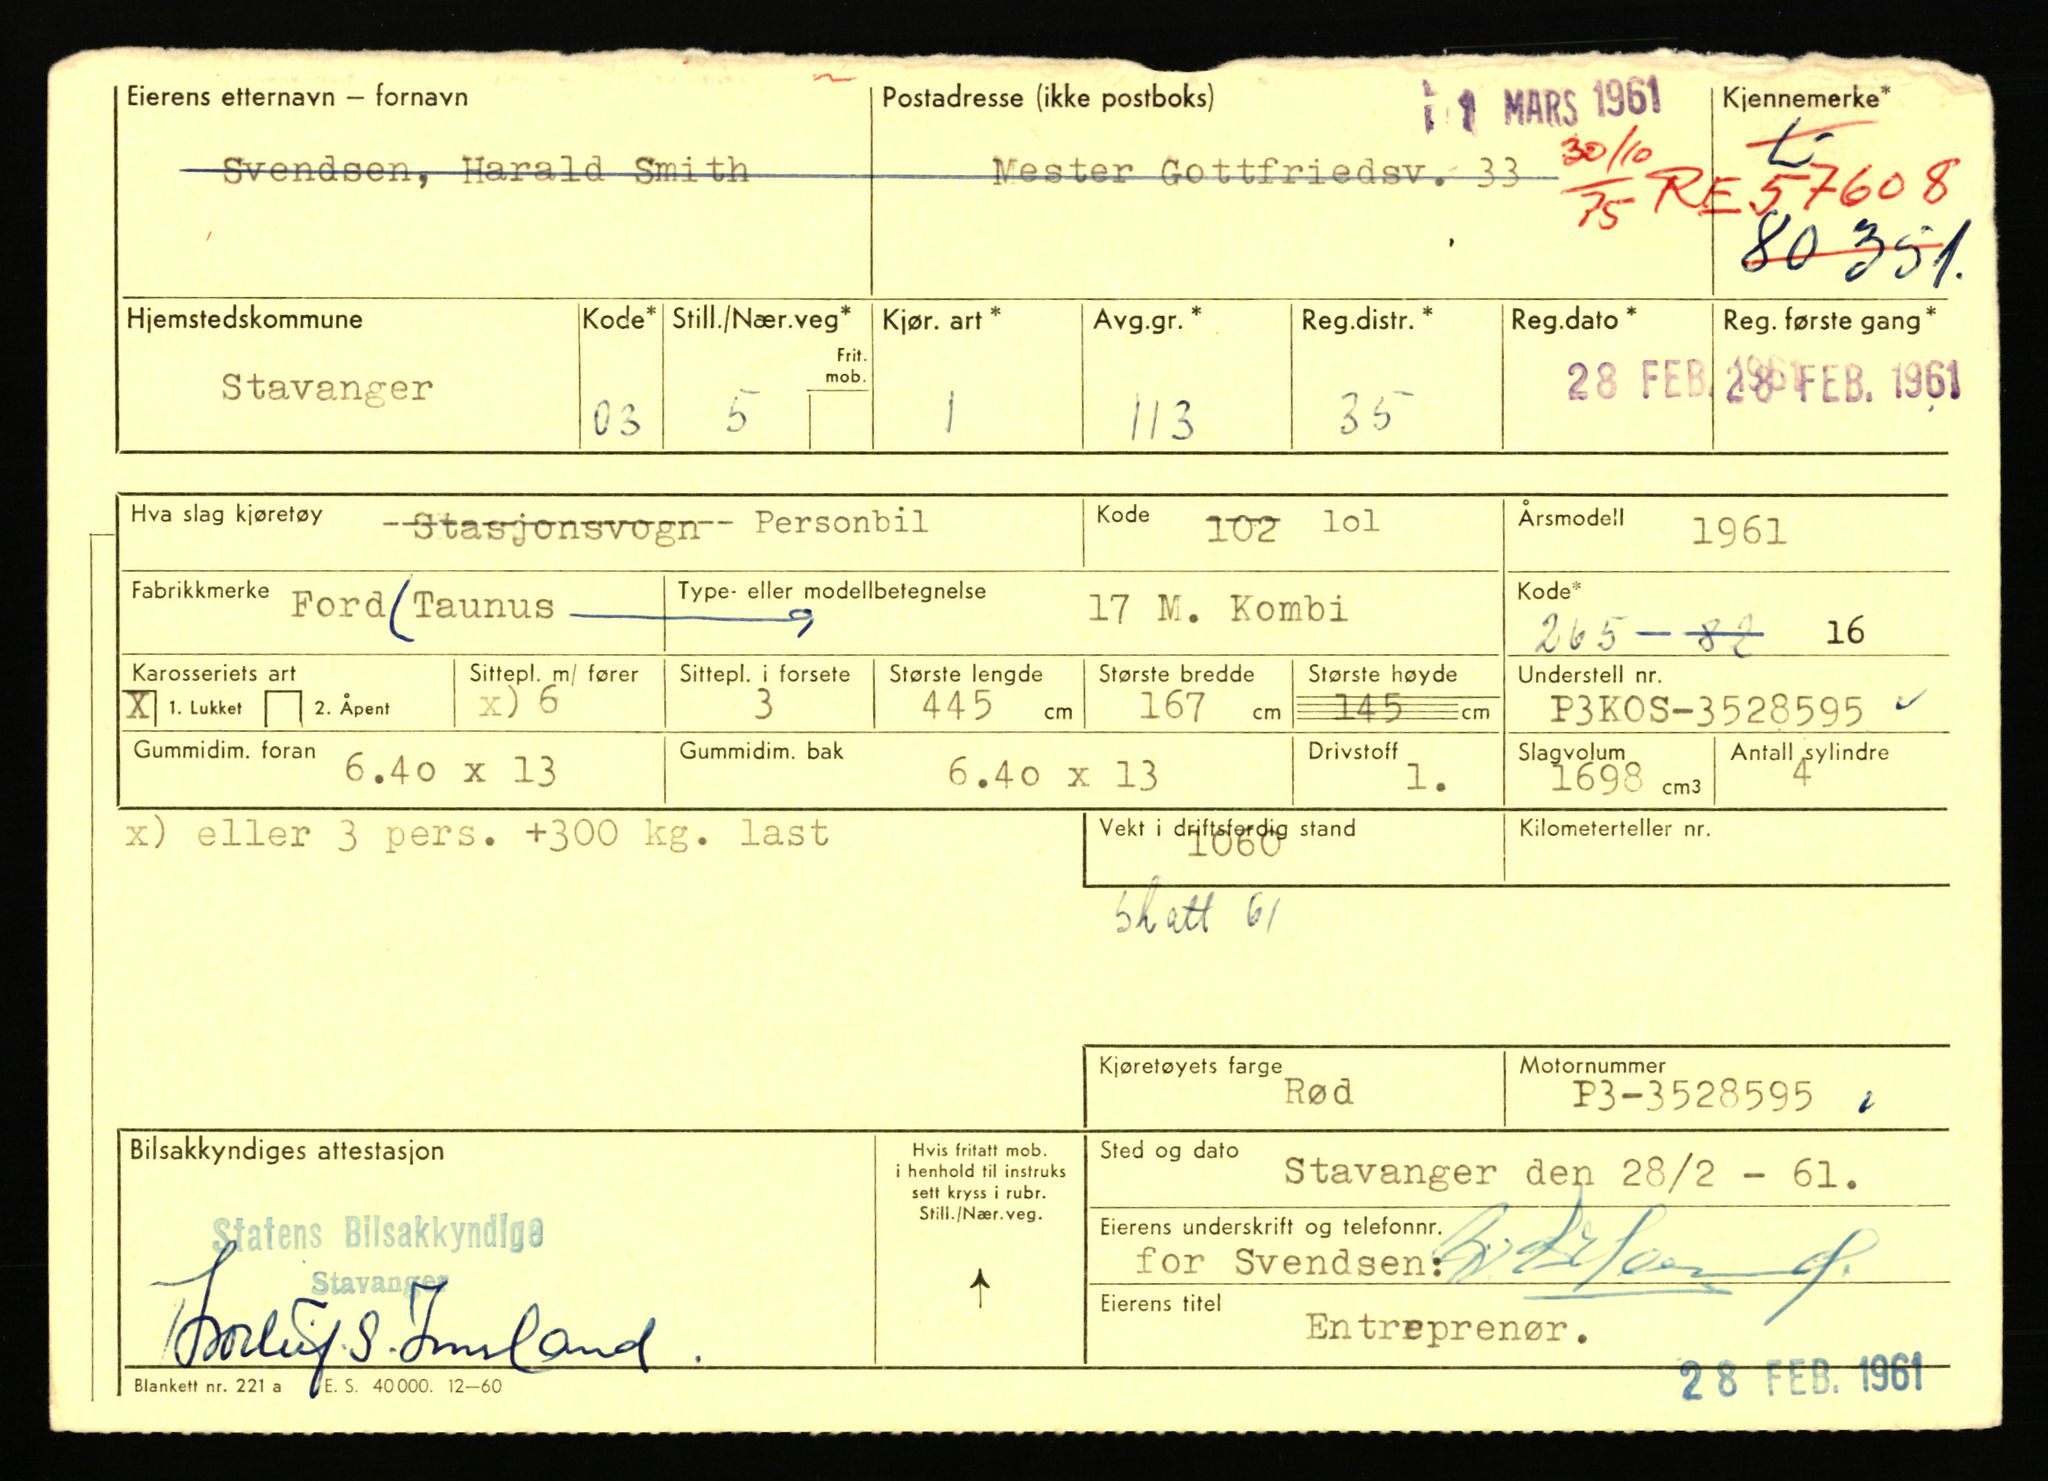 Eierens etternavn – fornavn
Svendsen, Harald Smith
Postadresse (ikke postboks)
Mester Gottfriedsv. 33
1 MARS 1961
30/10 75
RE 57608
Kjennemerke*
L
80351.
Hjemstedskommune
Stavanger
Kode*
03
Still./Nær.veg*
5
Frit. mob.
Kjør. art *
1
Avg.gr. *
113
Reg.distr. *
35
Reg.dato *
28 FEB. 1961
Reg. første gang *
28 FEB. 1961
Hva slag kjøretøy
--Stasjonsvogn-- Personbil
Kode
102 lol
Årsmodell
1961
Fabrikkmerke
Ford (Taunus
Type- eller modellbetegnelse
17 M. Kombi
Kode*
265 – 82 16
Karosseriets art
X 1. Lukket 2. Åpent
Sittepl. m/ fører
x) 6
Sittepl. i forsete
3
Største lengde
445 cm
Største bredde
167 cm
Største høyde
145 cm
Understell nr.
P3KOS-3528595
Gummidim. foran
6.40 x 13
Gummidim. bak
6.40 x 13
Drivstoff
1.
Slagvolum
1698 cm3
Antall sylindre
4
x) eller 3 pers. +300 kg. last
Vekt i driftsferdig stand
1060
Kilometerteller nr.
skatt 61
Kjøretøyets farge
Rød
Motornummer
P3-3528595
Bilsakkyndiges attestasjon
Statens Bilsakkyndige
Stavanger
Hvis fritatt mob.
i henhold til instruks
sett kryss i rubr.
Still./Nær.veg.
Sted og dato
Stavanger den 28/2 - 61.
Eierens underskrift og telefonnr.
for Svendsen:
Eierens titel
Entreprenør.
28 FEB. 1961
Blankett nr. 221 a E. S. 40 000. 12–60